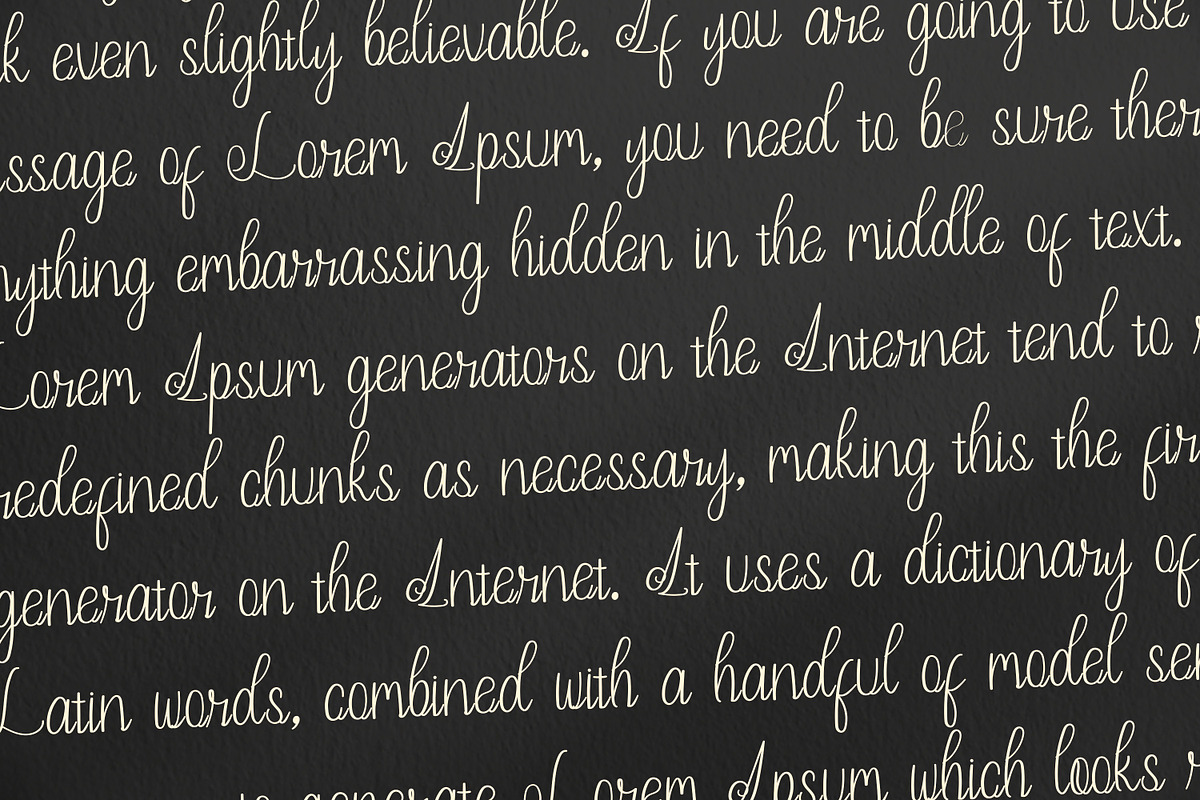 k even slightly believable. If you are going to use
ssage of Lorem Ipsum, you need to be sure ther
nything embarrassing hidden in the middle of text.
Lorem Ipsum generators on the Internet tend to r
redefined chunks as necessary, making this the fir
generator on the Internet. It uses a dictionary of
Latin words, combined with a handful of model sen
to generate Lorem Ipsum which looks r